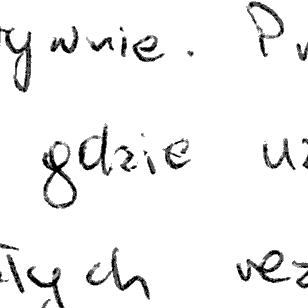 ywnie. P
gdzie uz
łych rez